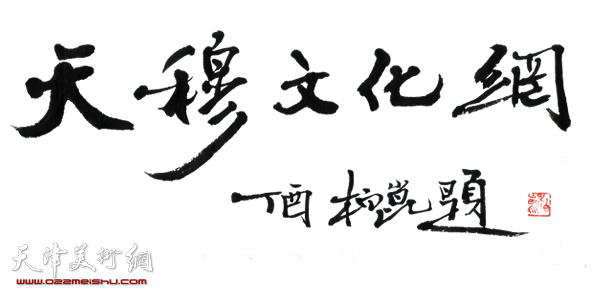 天穆文化網
丁酉 題
天津美術網
www.022meishu.com